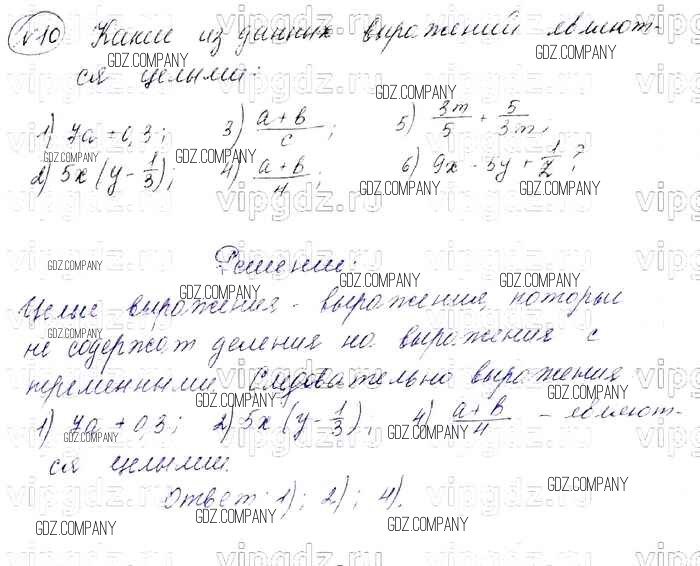 №10 Какие из данных выражений являют-
ся целыми:
1) 7a + 0,3; 3) \frac{a+b}{c}; 5) \frac{3m}{5} + \frac{5}{3m};
2) 5x(y - \frac{1}{3}); 4) \frac{a+b}{4}; 6) 9x - 5y + \frac{1}{z}?
Решение:
Целые выражения - выражения, которые
не содержат деления на выражения с
переменными. Следовательно выражения
1) 7a + 0,3; 2) 5x(y - \frac{1}{3}); 4) \frac{a+b}{4} - являют-
ся целыми.
Ответ: 1); 2); 4).
GDZ.COMPANY
vipgdz.ru